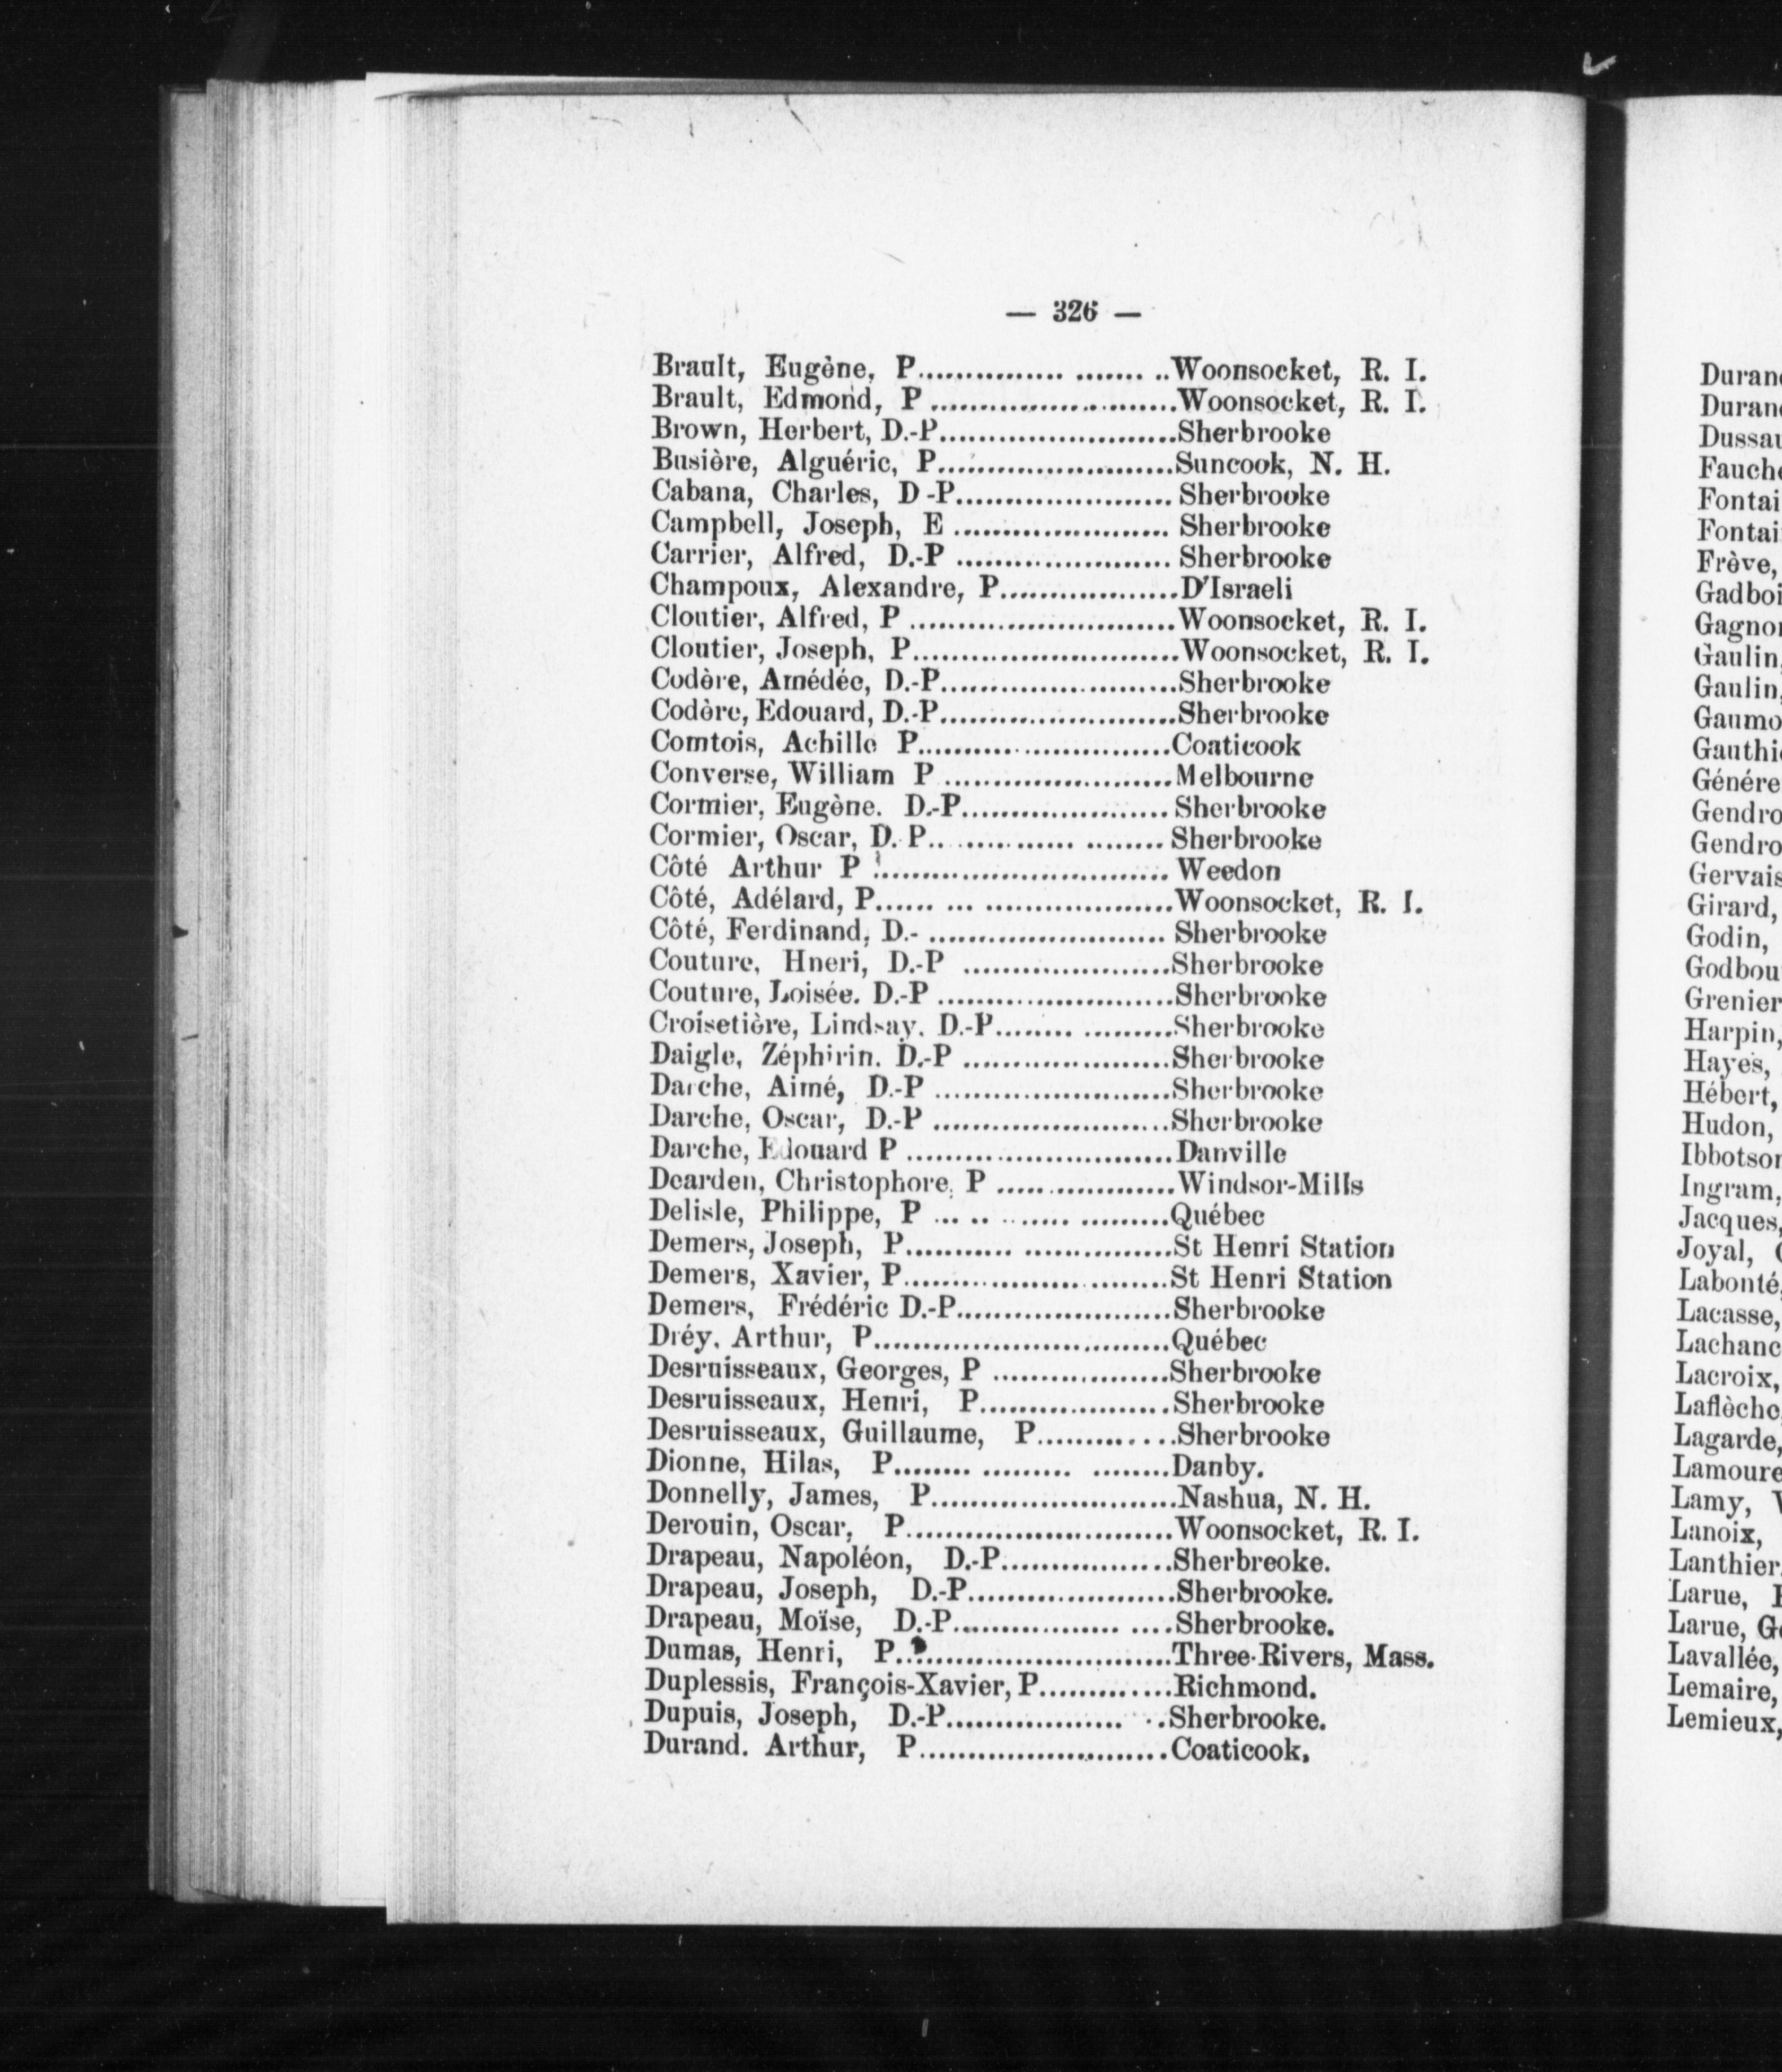 — 326 —
Brault, Eugène, P......................Woonsocket, R. I.
Brault, Edmond, P ........................Woonsocket, R. I.
Brown, Herbert, D.-P........................Sherbrooke
Busière, Alguéric, P........................Suncook, N. H.
Cabana, Charles, D -P...................... Sherbrooke
Campbell, Joseph, E ...................... Sherbrooke
Carrier, Alfred, D.-P ...................... Sherbrooke
Champoux, Alexandre, P..................D'Israeli
Cloutier, Alfred, P ...........................Woonsocket, R. I.
Cloutier, Joseph, P...........................Woonsocket, R. I.
Codère, Amédée, D.-P........................Sherbrooke
Codère, Edouard, D.-P........................Sherbrooke
Comtois, Achille P..........................Coaticook
Converse, William P .......................Melbourne
Cormier, Eugène. D.-P..................... Sherbrooke
Cormier, Oscar, D. P.. ........... ........ Sherbrooke
Côté Arthur P .............................. Weedon
Côté, Adélard, P...... ... ...................Woonsocket, R. I.
Côté, Ferdinand, D.- ........................ Sherbrooke
Couture, Hneri, D.-P .....................Sherbrooke
Couture, Loisée. D.-P ........................Sherbrooke
Croisetière, Lindsay. D.-P........ .........Sherbrooke
Daigle, Zéphirin. D.-P .....................Sherbrooke
Darche, Aimé, D.-P ........................Sherbrooke
Darche, Oscar, D.-P ........................Sherbrooke
Darche, Edouard P ...........................Danville
Dearden, Christophore, P ..................Windsor-Mills
Delisle, Philippe, P ... .. ....... .........Québec
Demers, Joseph, P........... ...............St Henri Station
Demers, Xavier, P...........................St Henri Station
Demers, Frédéric D.-P......................Sherbrooke
Dréy. Arthur, P..............................Québec
Desruisseaux, Georges, P ..................Sherbrooke
Desruisseaux, Henri, P...................Sherbrooke
Desruisseaux, Guillaume, P..............Sherbrooke
Dionne, Hilas, P........ ......... ........Danby.
Donnelly, James, P.........................Nashua, N. H.
Derouin, Oscar, P...........................Woonsocket, R. I.
Drapeau, Napoléon, D.-P.................Sherbreoke.
Drapeau, Joseph, D.-P.....................Sherbrooke.
Drapeau, Moïse, D.-P................. ....Sherbrooke.
Dumas, Henri, P............................Three-Rivers, Mass.
Duplessis, François-Xavier, P..............Richmond.
Dupuis, Joseph, D.-P.................. ..Sherbrooke.
Durand. Arthur, P.........................Coaticook.
Frève,
Gaulin,
Gaulin,
Girard,
Godin,
Harpin,
Hayes,
Hébert,
Hudon,
Ingram,
Jacques,
Joyal,
Labonté,
Lacasse,
Lacroix,
Lagarde,
Lamy,
Lanoix,
Larue,
Larue,
Lavallée,
Lemaire,
Lemieux,